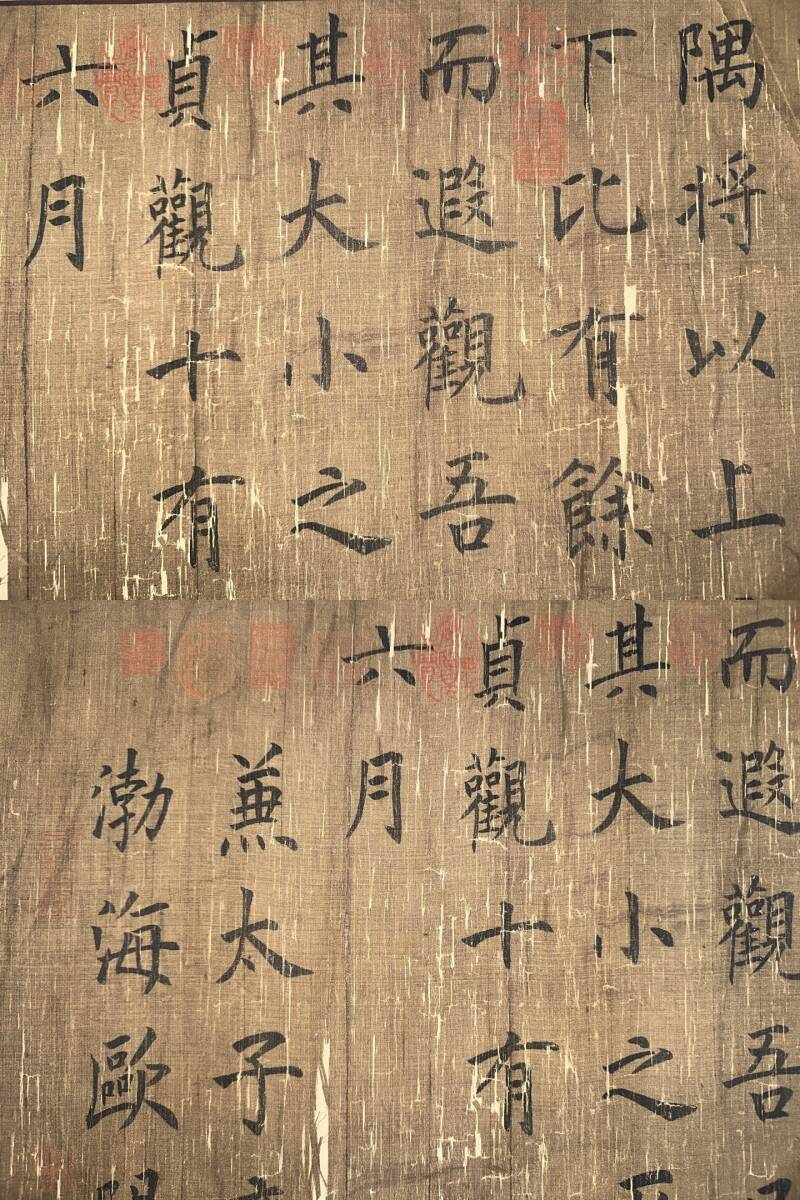 隅将以上
下比有餘
而遐觀吾
其大小之
貞觀十有
六月
而遐觀吾
其大小之
貞觀十有
六月
兼太子
渤海歐